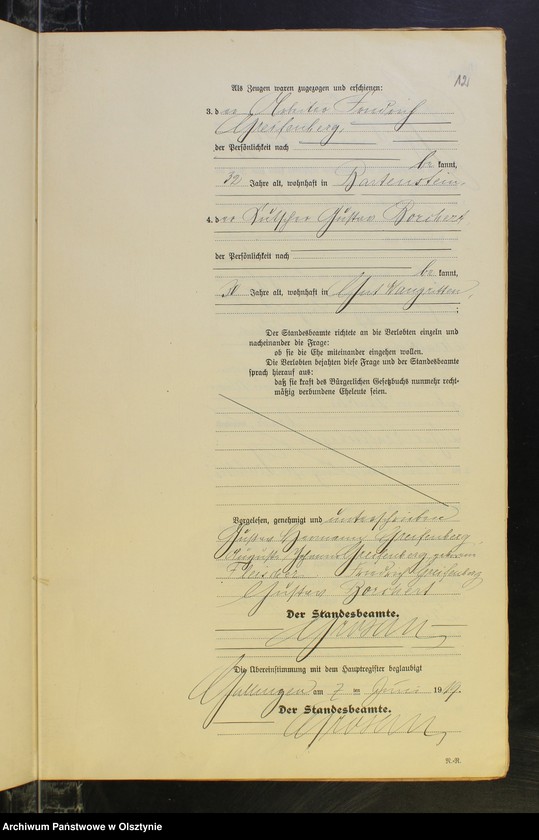 12
Als Zeugen waren zugezogen und erschienen:
3. der Arbeiter Friedrich
Greifenberg,
der Persönlichkeit nach
be kannt,
32 Jahre alt, wohnhaft in Bartenstein.
4. der Kutscher Gustav Borchert
der Persönlichkeit nach
be kannt,
Jahre alt, wohnhaft in Gut Wangritten,
;
Der Standesbeamte richtete an die Verlobten einzeln und
nacheinander die Frage:
ob sie die Ehe miteinander eingehen wollen.
Die Verlobten bejahten diese Frage und der Standesbeamte
sprach hierauf aus:
daß sie kraft des Bürgerlichen Gesetzbuchs nunmehr recht-
mäßig verbundene Eheleute seien.
Vorgelesen, genehmigt und unterschrieben
Gustav Hermann Greifenberg
Auguste Johanne Greifenberg geborene
Friedrich Greifenberg
Gustav Borchert
Der Standesbeamte.
Die Übereinstimmung mit dem Hauptregister beglaubigt
Gallingen am 7 ten Juni 19
Der Standesbeamte.
R.-R.
Archiwum Państwowe w Olsztynie